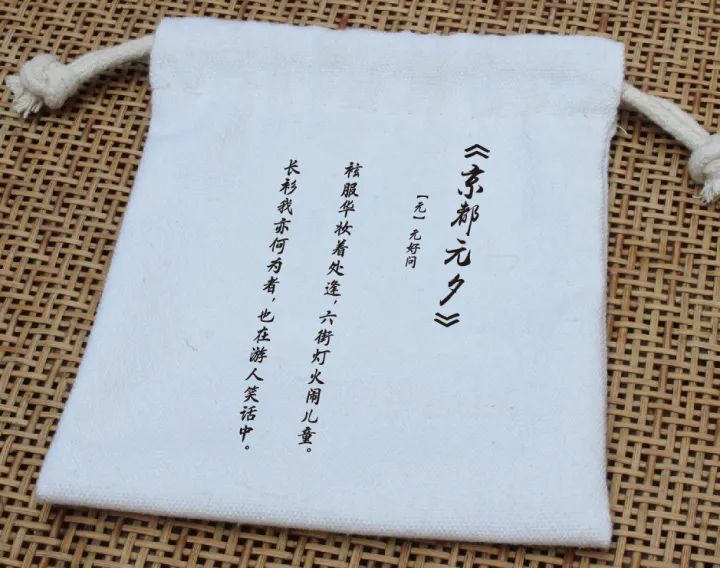 《京都元夕》
【元】元好问
袨服华妆着处逢，六街灯火闹儿童。
长衫我亦何为者，也在游人笑话中。